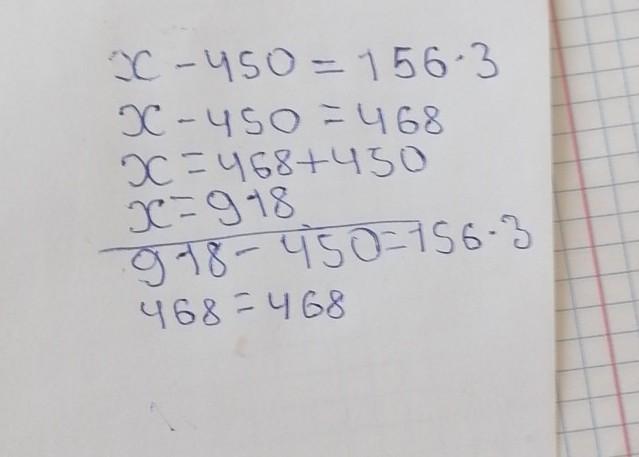 x - 450 = 156 · 3
x - 450 = 468
x = 468 + 450
x = 918
918 - 450 = 156 · 3
468 = 468